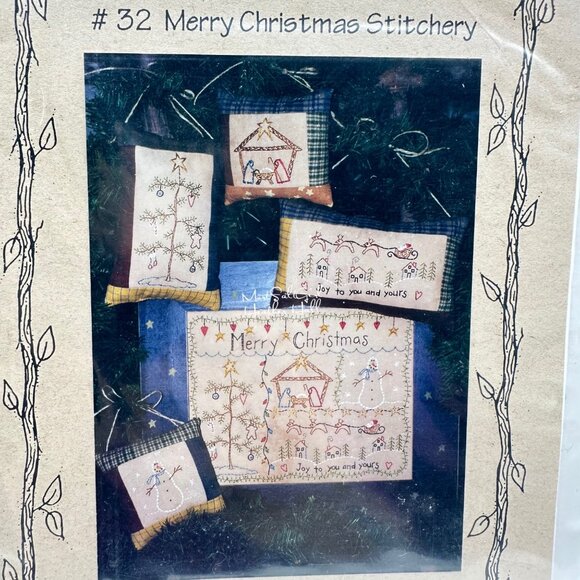 # 32 Merry Christmas Stitchery
Joy to you and yours
Merry Christmas
Joy to you and yours